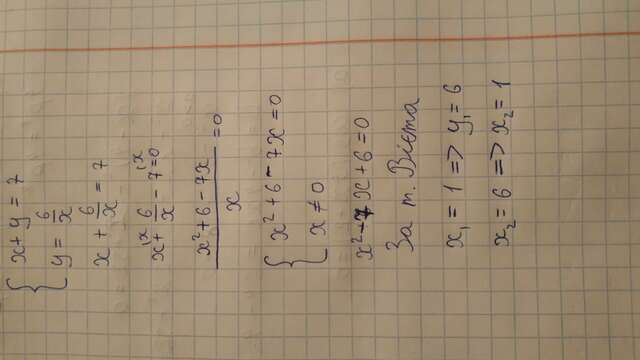 { x + y = 7
y = 6/x
x + 6/x = 7
x⁽ˣ + 6/x − 7⁽ˣ = 0
(x² + 6 − 7x)/x = 0
{ x² + 6 − 7x = 0
x ≠ 0
x² − 7x + 6 = 0
За т. Вієта
x₁ = 1 => y₁ = 6
x₂ = 6 => x₂ = 1